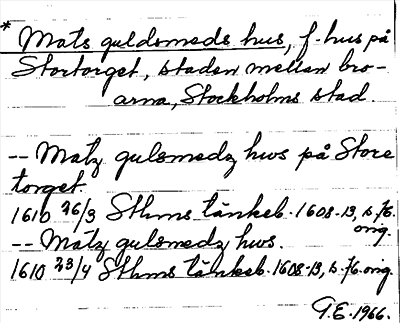 * Mats guldsmeds hus, f. hus på
Stortorget, staden mellan bro-
arna, Stockholms stad.
-- Matz gulsmedz hws på Store
torget
1610 26/3 Sthms tänkeb. 1608-13, s. 76.
orig.
-- Mätz gulsmedz hws.
1610 23/4 Sthms tänkeb. 1608-13, s. 76. orig.
G.E. 1966.